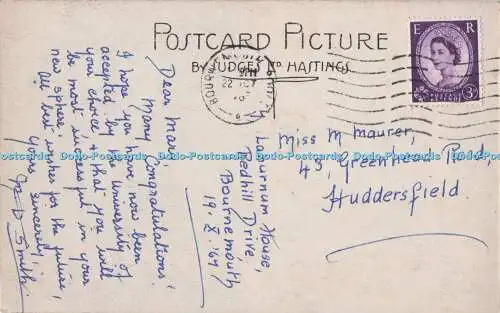 POSTCARD PICTURE
BY JUDGES LTD HASTINGS.
E R
POSTAGE
3D
BOURNEMOUTH
22
Dear
Many Congratulations!
I hope you have now been
accepted by the University of
your choice & that you will
be most successful in your
new sphere.
All best wishes for the future,
Yours sincerely,
D Smith.
Laburnum House,
Redhill Drive,
Bournemouth
19. X. '64
Miss M Maurer,
45, Greenhead Road,
Huddersfield.
Dodo-Postcards Dodo-Postcards Dodo-Postcards Dodo-Postcards Dodo-Postcards